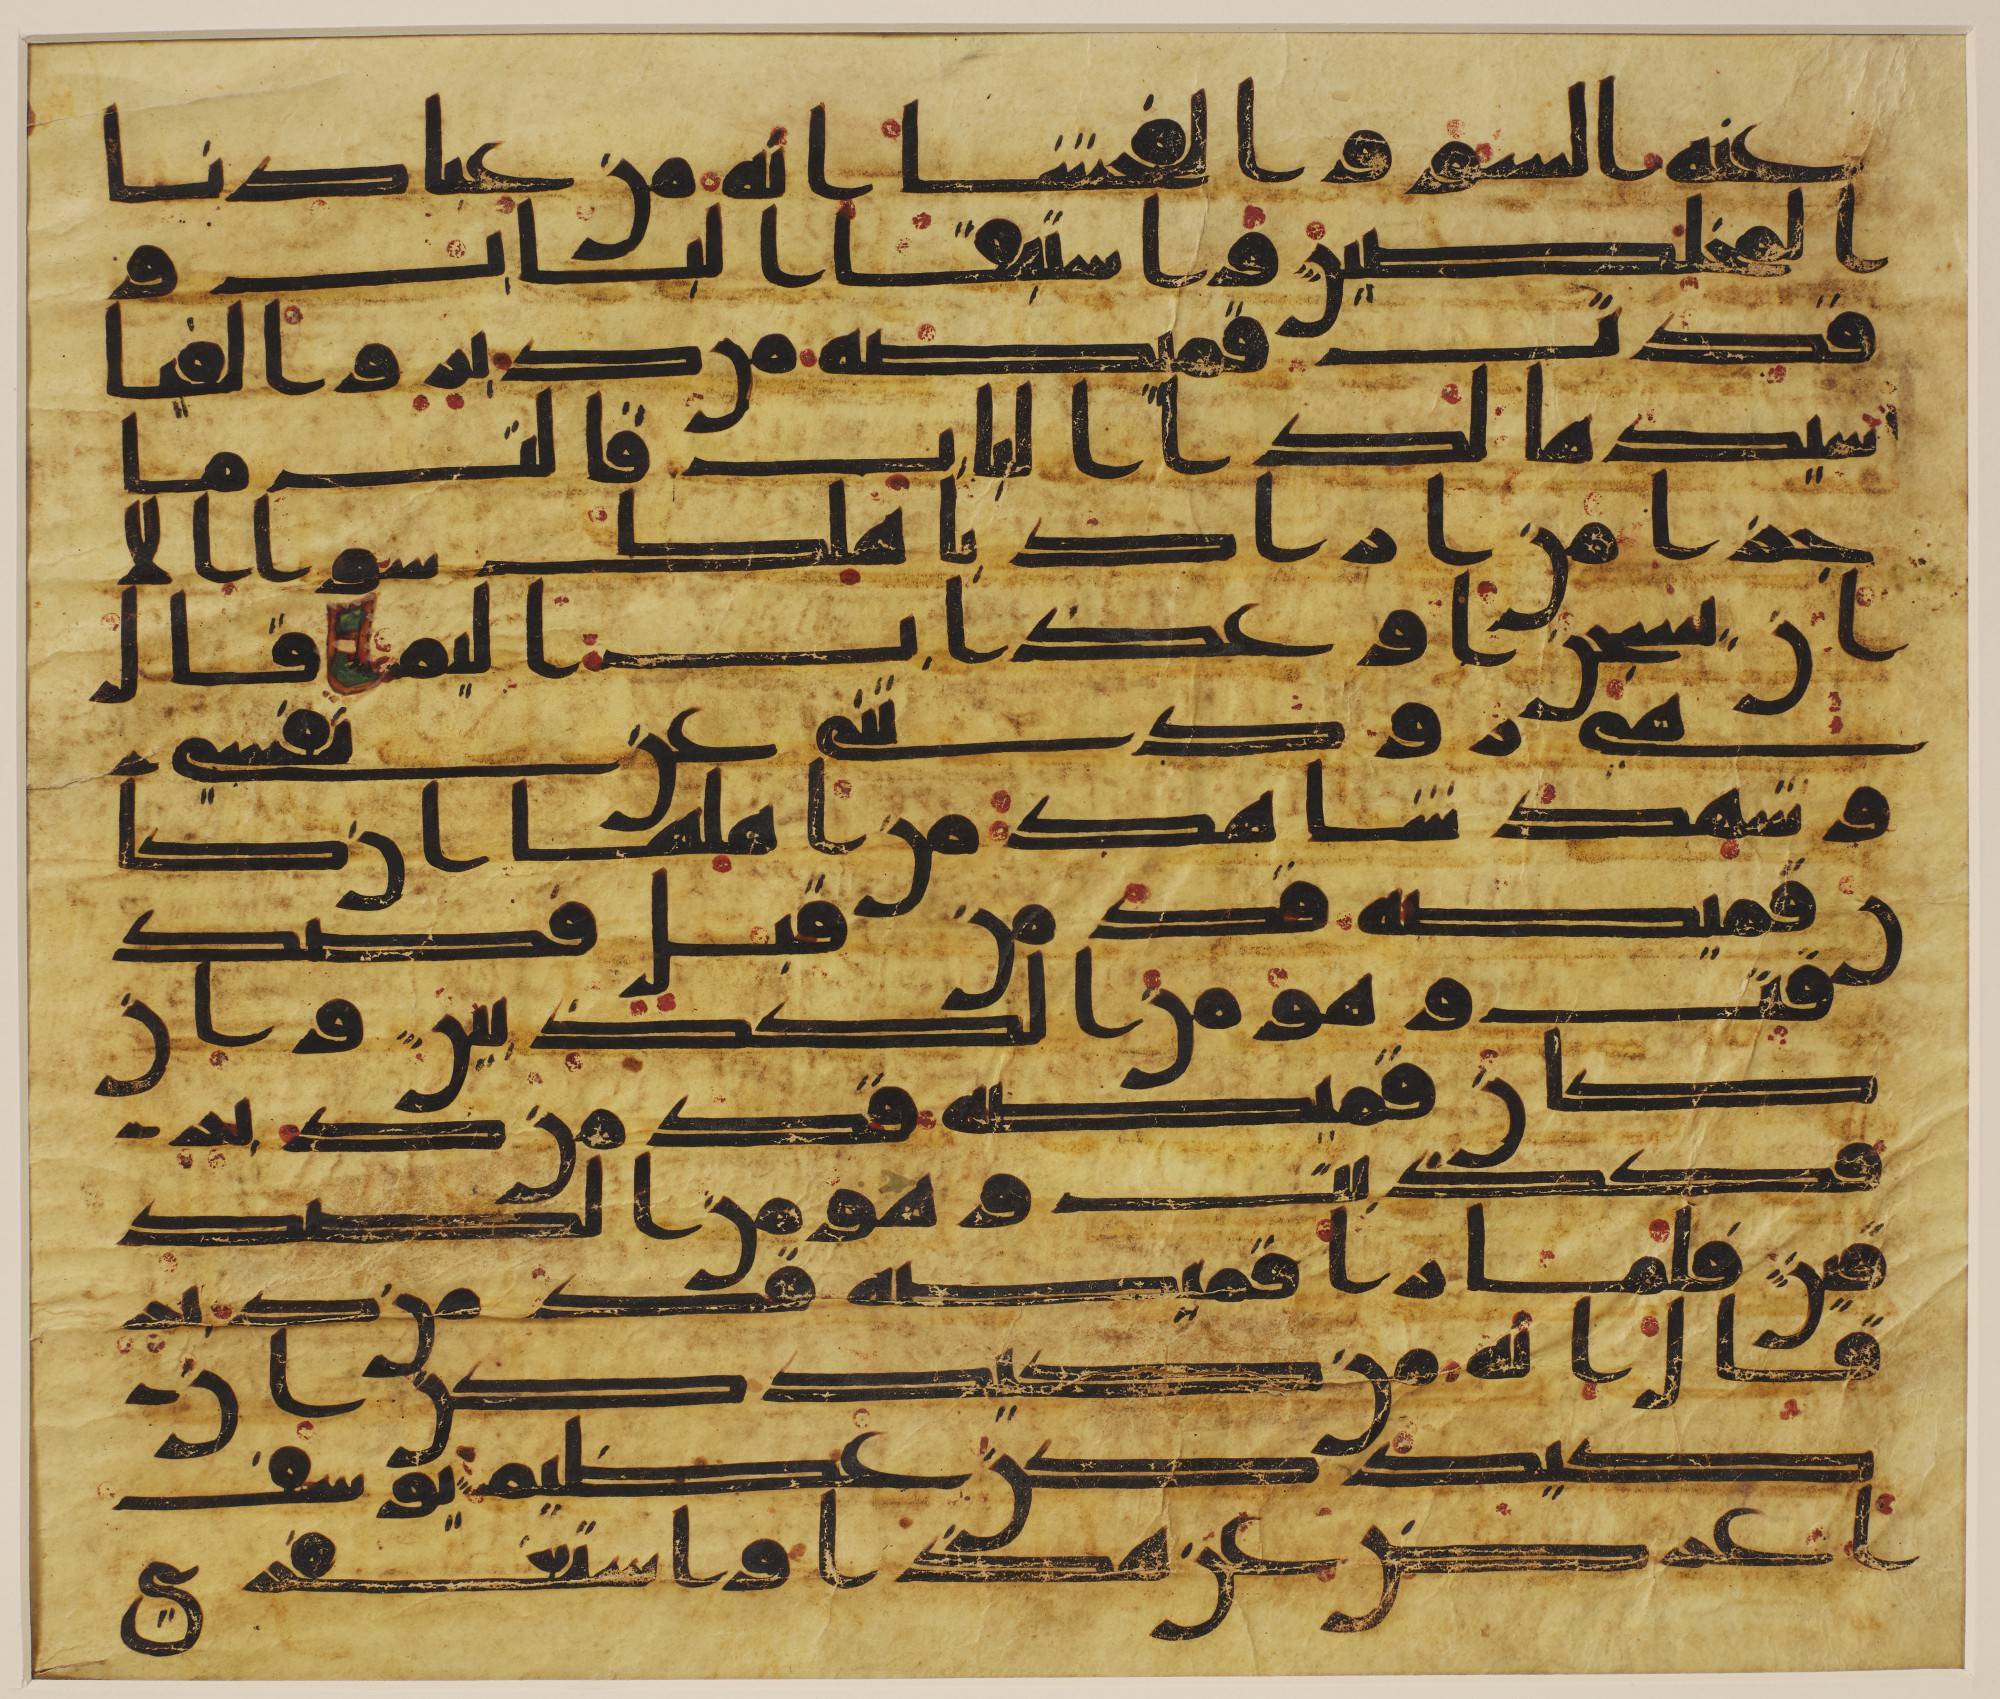 عنه السو والفحشا انه من عبادنا
المخلصين واستبقا الباب و
قدت قميصه من دبر والفيا
سيدها لدا الباب قالت ما
جزا من اراد باهلك سوا الا
ان يسجن او عذاب اليم قال
هي رودتني عن نفسي
وشهد شاهد من اهلها ان كا
ن قميصه قد من قبل فصد
قت وهو من الكذبين وان
كان قميصه قد من دبر
فكذبت وهو من الصد
قين فلما را قميصه قد من دبر
قال انه من كيدكن ان
كيدكن عظيم يوسف
اعرض عن هذا واستغفري